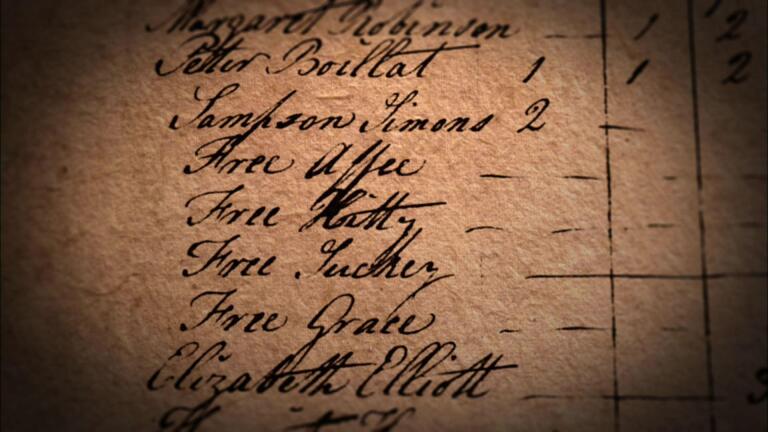 Margaret Robinson — 1 2
Peter Boillat 1 1 2
Sampson Simons 2 —
Free Affee — — —
Free Hitty — — —
Free Suckey —
Free Grace — — —
Elizabeth Elliott — — 3